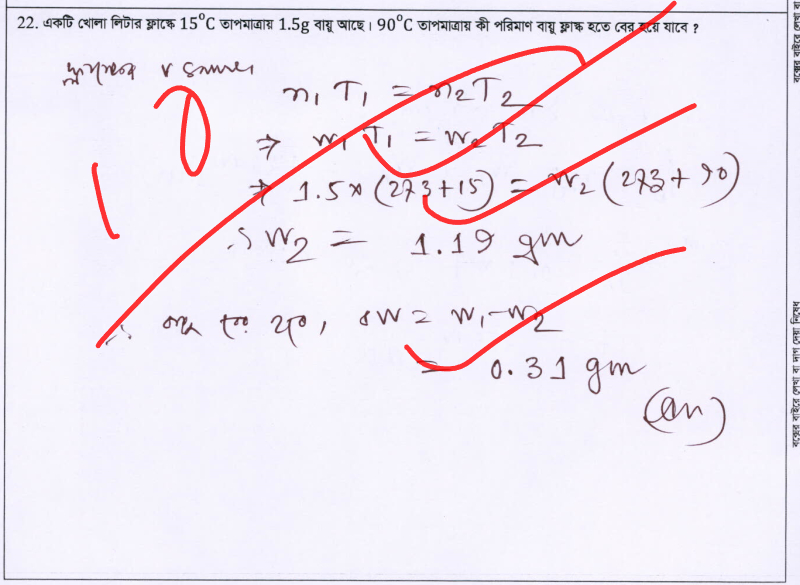 22. একটি খোলা লিটার ফ্লাস্কে 15⁰C তাপমাত্রায় 1.5g বায়ু আছে। 90⁰C তাপমাত্রায় কী পরিমাণ বায়ু ফ্লাস্ক হতে বের হয়ে যাবে ?
V same
n₁ T₁ = n₂T₂
⇒ w₁ T₁ = w₂ T₂
⇒ 1.5 × (273+15) = w₂ (273+90)
∴ w₂ = 1.19 gm
∴ বের হবে, ΔW = w₁-w₂
= 0.31 gm
(Ans)
10
বক্সের বাইরে লেখা বা দাগ দেয়া নিষেধ
বক্সের বাইরে লেখা বা